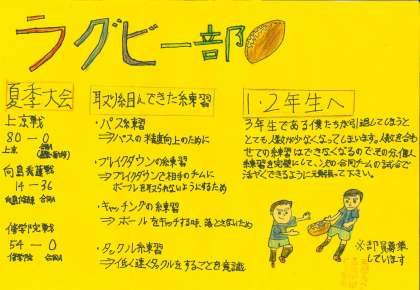 ラグビー部
夏季大会
上京戦
80 － 0
上京
向島秀蓮戦
14 － 36
修学院戦
54 － 0
修学院
取り組んできた練習
・パス練習
⇒パスの精度向上のために
・ブレイクダウンの練習
⇒ブレイクダウンで相手のチームに
ボールを取られないようにするため
・キャッチングの練習
⇒ボールをキャッチする時、落とさないため
・タックル練習
⇒低く速くタックルをすることを意識
1・2年生へ
3年生である僕たちが引退してしまうと
とても人数が少なくなってしまいます。人数を合わ
せての練習はできなくなるのでその分、個人
練習を完璧にして、次の合同チームの試合で
活やくできるように頑張って下さい。
※部員募集
しています